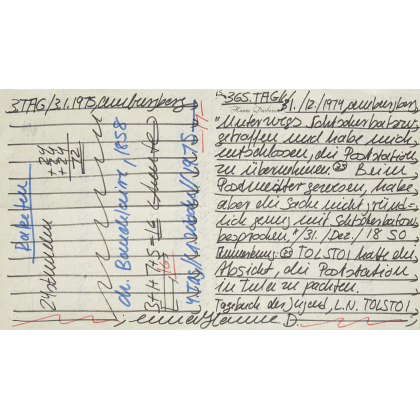 3TAG/3.1.1975, am burgberg
Raketen
24 stunden
24
+24
+24
72
ch. Baudelaire, 1858
3+1+7+5=16 heute
365.TAG/
31./12./1974, am burgberg
"Unterwegs Schtscherbatow
getroffen und habe mich
entschlossen, die Poststation
zu übernehmen. Beim
Postmeister gewesen, habe
aber die Sache nicht gründ-
lich genug mit Schtscherbatow
besprochen."/31./Dez./1850
Anmerkung: TOLSTOI hatte die
Absicht, die Poststation
in Tula zu pachten.
Tagebuch der Jugend, L.N. TOLSTOI,